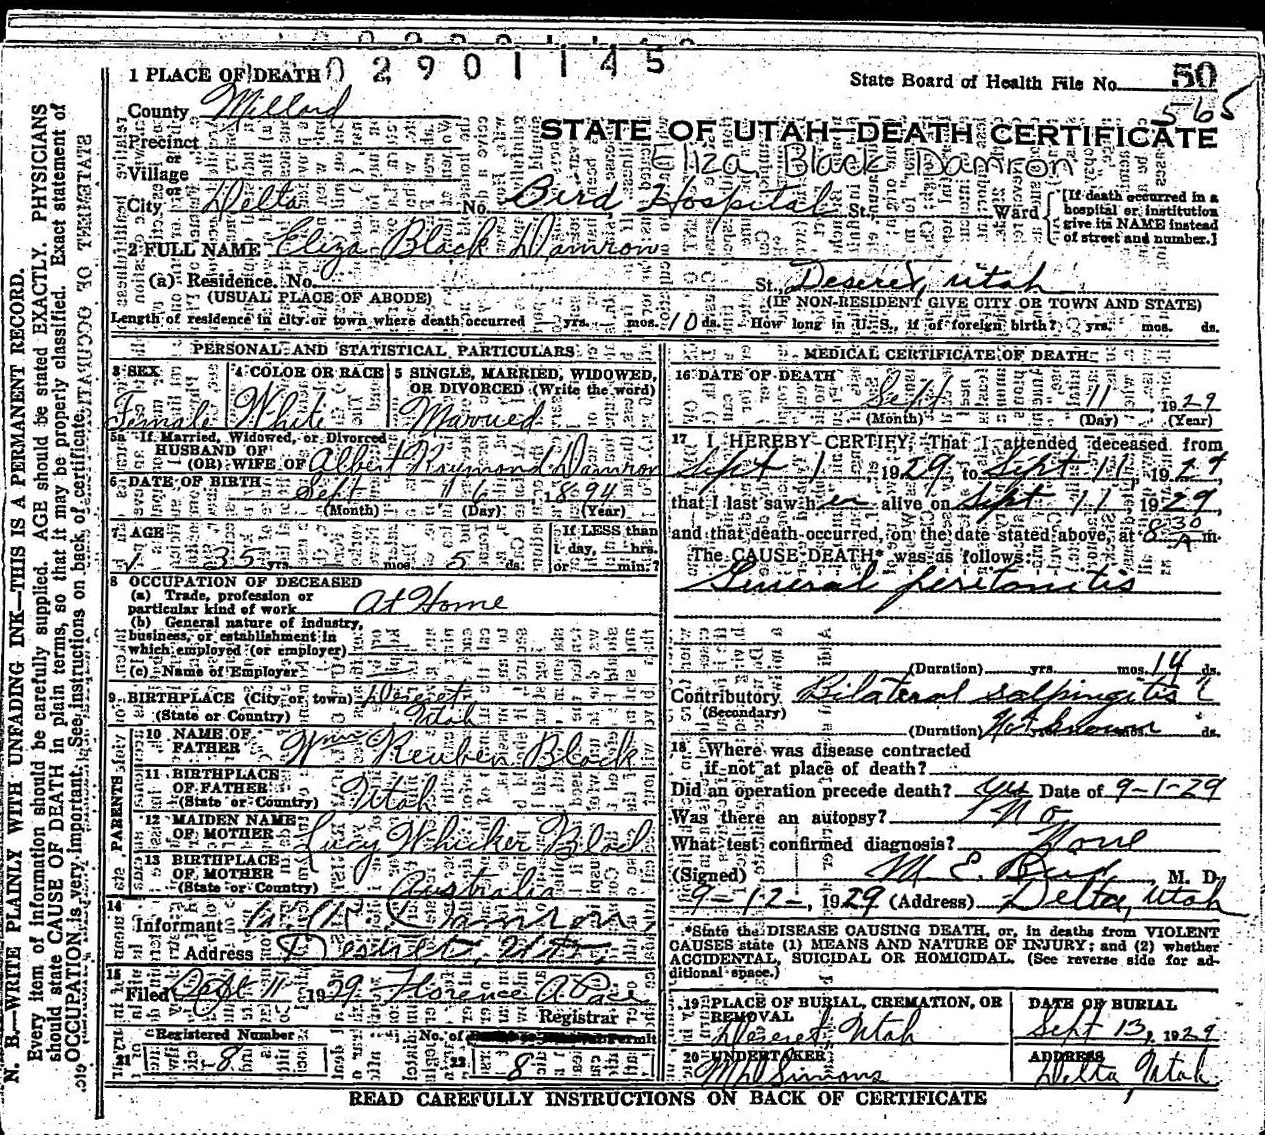 0 2 9 0 1 1 4 5
1 PLACE OF DEATH
State Board of Health File No. 50
565
County Millard
STATE OF UTAH—DEATH CERTIFICATE
Precinct
Eliza Black Damron
Village
or
City Delta No. Bird Hospital St. Ward
[If death occurred in a hospital or institution give its NAME instead of street and number.]
2 FULL NAME Eliza Black Damron
(a) Residence. No. St., Deseret, Utah
(USUAL PLACE OF ABODE) (IF NON-RESIDENT GIVE CITY OR TOWN AND STATE)
Length of residence in city or town where death occurred yrs. mos. 10 ds. How long in U. S., if of foreign birth? yrs. mos. ds.
PERSONAL AND STATISTICAL PARTICULARS
3 SEX
Female
4 COLOR OR RACE
White
5 SINGLE, MARRIED, WIDOWED, OR DIVORCED (Write the word)
Married
5a If Married, Widowed, or Divorced
HUSBAND OF
(OR) WIFE OF Albert Raymond Damron
6 DATE OF BIRTH Sept 6 1894
(Month) (Day) (Year)
7 AGE
35 yrs. mos. 5 ds.
If LESS than
1 day, hrs.
or min.?
8 OCCUPATION OF DECEASED
(a) Trade, profession or
particular kind of work At Home
(b) General nature of industry,
business, or establishment in
which employed (or employer)
(c) Name of Employer
9 BIRTHPLACE (City or town) Deseret
(State or Country) Utah
PARENTS
10 NAME OF
FATHER Wm Reuben Black
11 BIRTHPLACE
OF FATHER
(State or Country) Utah
12 MAIDEN NAME
OF MOTHER Lucy Whicker Black
13 BIRTHPLACE
OF MOTHER
(State or Country) Australia
14
Informant Damron
Address Deseret, Utah
15
Filed Sept 11 1929 Florence A Pace
Registrar
Registered Number
21 8
No. of Permit
22 8
MEDICAL CERTIFICATE OF DEATH
16 DATE OF DEATH Sept 11, 1929
(Month) (Day) (Year)
17 I HEREBY CERTIFY, That I attended deceased from
Sept 1, 1929, to Sept 11 1929,
that I last saw her alive on Sept 11 1929,
and that death occurred, on the date stated above, at 8 30 A m.
The CAUSE DEATH* was as follows:
General peritonitis
(Duration) yrs. mos. 14 ds.
Contributory Bilateral salpingitis ?
(Secondary)
(Duration) Not known ds.
18 Where was disease contracted
if not at place of death?
Did an operation precede death? yes Date of 9-1-29
Was there an autopsy? No
What test confirmed diagnosis? None
(Signed) M. E. Bird, M. D.
9-12-, 1929 (Address) Delta, Utah
*State the DISEASE CAUSING DEATH, or, in deaths from VIOLENT
CAUSES state (1) MEANS AND NATURE OF INJURY; and (2) whether
ACCIDENTAL, SUICIDAL OR HOMICIDAL. (See reverse side for ad-
ditional space.)
19 PLACE OF BURIAL, CREMATION, OR
REMOVAL
Deseret, Utah
DATE OF BURIAL
Sept 13, 1929
20 UNDERTAKER
Simons
ADDRESS
Delta, Utah
READ CAREFULLY INSTRUCTIONS ON BACK OF CERTIFICATE
N. B.—WRITE PLAINLY WITH UNFADING INK—THIS IS A PERMANENT RECORD.
Every item of information should be carefully supplied. AGE should be stated EXACTLY. PHYSICIANS
should state CAUSE OF DEATH in plain terms, so that it may be properly classified. Exact statement of
OCCUPATION is very important. See instructions on back of certificate.